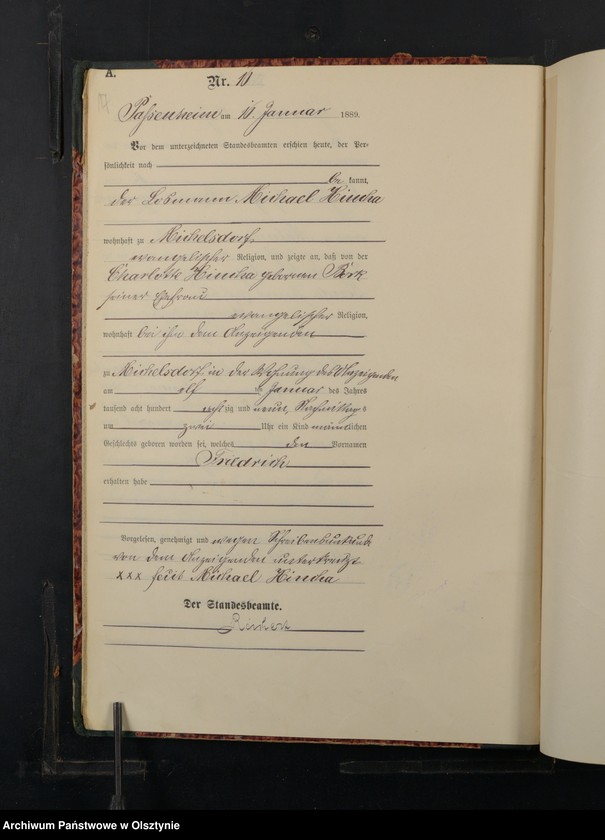 A.
Nr. 10
Passenheim am Januar 1889.
Vor dem unterzeichneten Standesbeamten erschien heute, der Per-
sönlichkeit nach
be kannt,
der Losmann Michael
wohnhaft zu Michelsdorf,
evangelischer Religion, und zeigte an, daß von der
Charlotte geborenen
seiner Ehefrau
evangelischer Religion,
wohnhaft bei ihm dem Anzeigenden
zu Michelsdorf in der Wohnung des Anzeigenden
am elf ten Januar des Jahres
tausend acht hundert acht zig und neun Nachmittags
um zwei Uhr ein Kind männlichen
Geschlechts geboren worden sei, welches den Vornamen
Friedrich
erhalten habe
Vorgelesen, genehmigt und wegen Schreibensunkunde
von dem Anzeigenden unterkreuzt
xxx Michael
Der Standesbeamte.
Archiwum Państwowe w Olsztynie